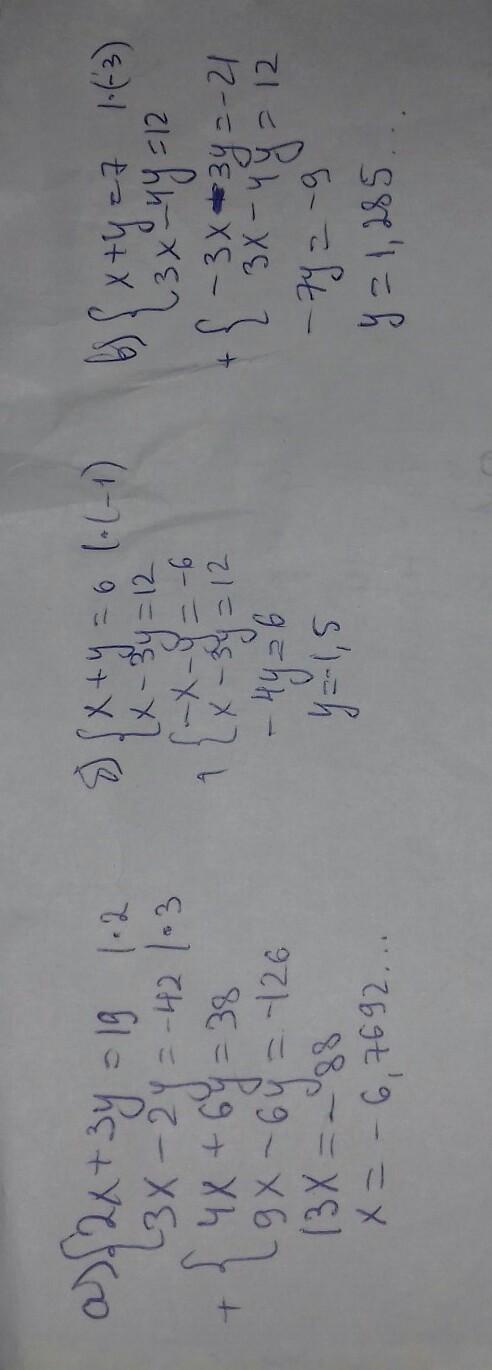 а) { 2x + 3y = 19 | · 2
3x - 2y = -42 | · 3
+ { 4x + 6y = 38
9x - 6y = -126
13x = -88
x = -6,7692...
б) { x + y = 6 | · (-1)
x - 3y = 12
{ -x - y = -6
x - 3y = 12
-4y = 6
y = -1,5
в) { x + y = 7 | · (-3)
3x - 4y = 12
+ { -3x - 3y = -21
3x - 4y = 12
-7y = -9
y = 1,285...